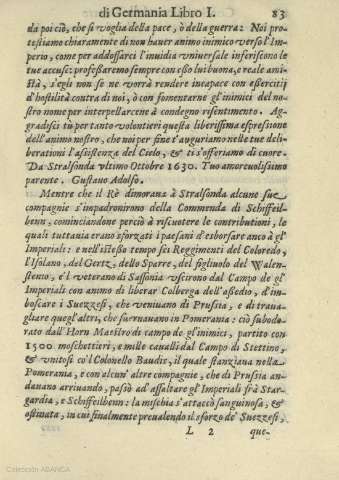 di Germania Libro I. 83
da poi ciò, che si voglia della pace, ò della guerra: Noi pro-
testiamo chiaramente di non hauer animo inimico verso l'Im-
perio, come per addossarci l'inuidia vniuersale inferiscono le
tue accuse: professaremo sempre con esso lui buona, e reale ami-
stà, s'egli non se ne vorrà rendere incapace con esserciti
d'hostilità contra di noi, ò con fomentarne gl'inimici del no-
stro nome per interpellarcene à condegno risentimento. Ag-
gradisci tù per tanto volontieri questa liberissima espressione
dell'animo nostro, che noi per fine t'auguriamo nelle tue deli-
berationi l'assistenza del Cielo, & ti s'offeriamo di cuore.
Da Stralsonda vltimo Ottobre 1630. Tuo amoreuolissimo
parente. Gustauo Adolfo.
Mentre che il Rè dimoraua à Stralsonda alcune sue
compagnie s'impadronirono della Commenda di Schiffeil-
benn, cominciandone perciò à riscuotere le contributioni, le
quali tuttauia erano sforzati i paesani d'esborsare anco à gl'
Imperiali: e nell'istesso tempo sei Reggimenti del Coloredo,
l'Isolano, del Gertz, dello Sparre, del figliuolo del Walen-
stenio, e'l veterano di Sassonia vscirono dal Campo de gl'
Imperiali con animo di liberar Colberga dell'assedio, d'im-
boscare i Suezzesi, che veniuano di Prussia, e di traua-
gliare quegl'altri, che suernauano in Pomerania: ciò subodo-
rato dall'Horn Maestro di campo de gl'inimici, partito con
1500 moschettieri, e mille caualli dal Campo di Stettino,
& vnitosi co'l Colonello Baudis, il quale stanziaua nella
Pomerania, e con alcun' altre compagnie, che di Prussia an-
dauano arriuando, passò ad assaltare gl'Imperiali frà Star-
gardia, e Schiffeilbenn: la mischia s'attaccò sanguinosa, &
ostinata, in cui finalmente preualendo il sforzo de' Suezzesi,
L 2 que-
Colección ABANCA